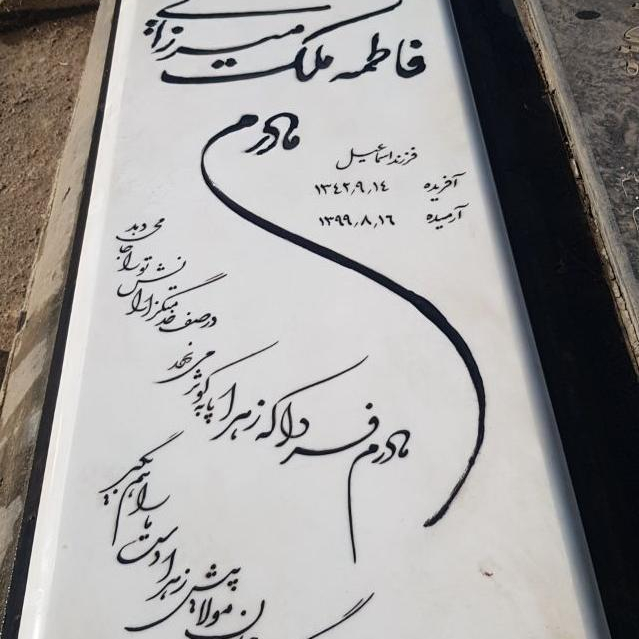 فاطمه ملک میرزایی
مادرم
فرزند اسماعیل
آفریده ۱۳۴۲٫۹٫۱۴
آرمیده ۱۳۹۹٫۸٫۱۶
مادرم فردا که زهرا پا به کوثر می نهد
در صف خدمتگزارانش تو را جا می دهد
مولا پیش زهرا دست ما را هم بگیر